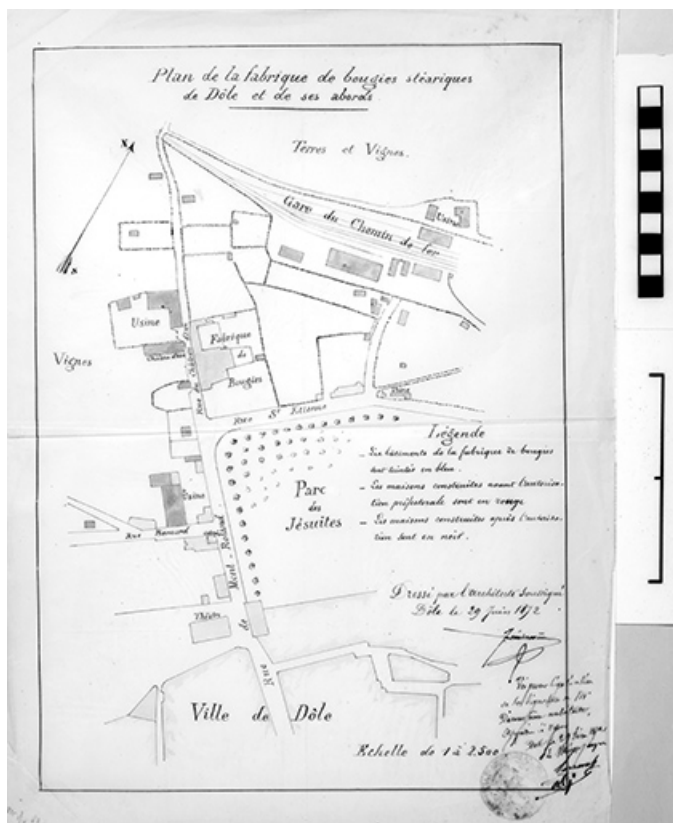 Plan de la fabrique de bougies stéariques
de Dôle et de ses abords
N
S
Terres et Vignes.
Gare du Chemin de fer
Usine
Usine
Fabrique
de
Bougies
Vignes
Rue St Etienne
Usine
Parc
des
Jésuites
Légende
_ Les bâtiments de la fabrique de bougies
sont teintés en bleu.
_ Les maisons construites avant l'autorisa-
tion préfectorale sont en rouge
_ Les maisons construites après l'autorisa-
tion sont en noir.
Rue
Rue de Mont-Roland
Dressé par l'architecte soussigné
Dôle le 29 Juin 1872
Théâtre
Ville de Dôle
Echelle de 1 à 2.500